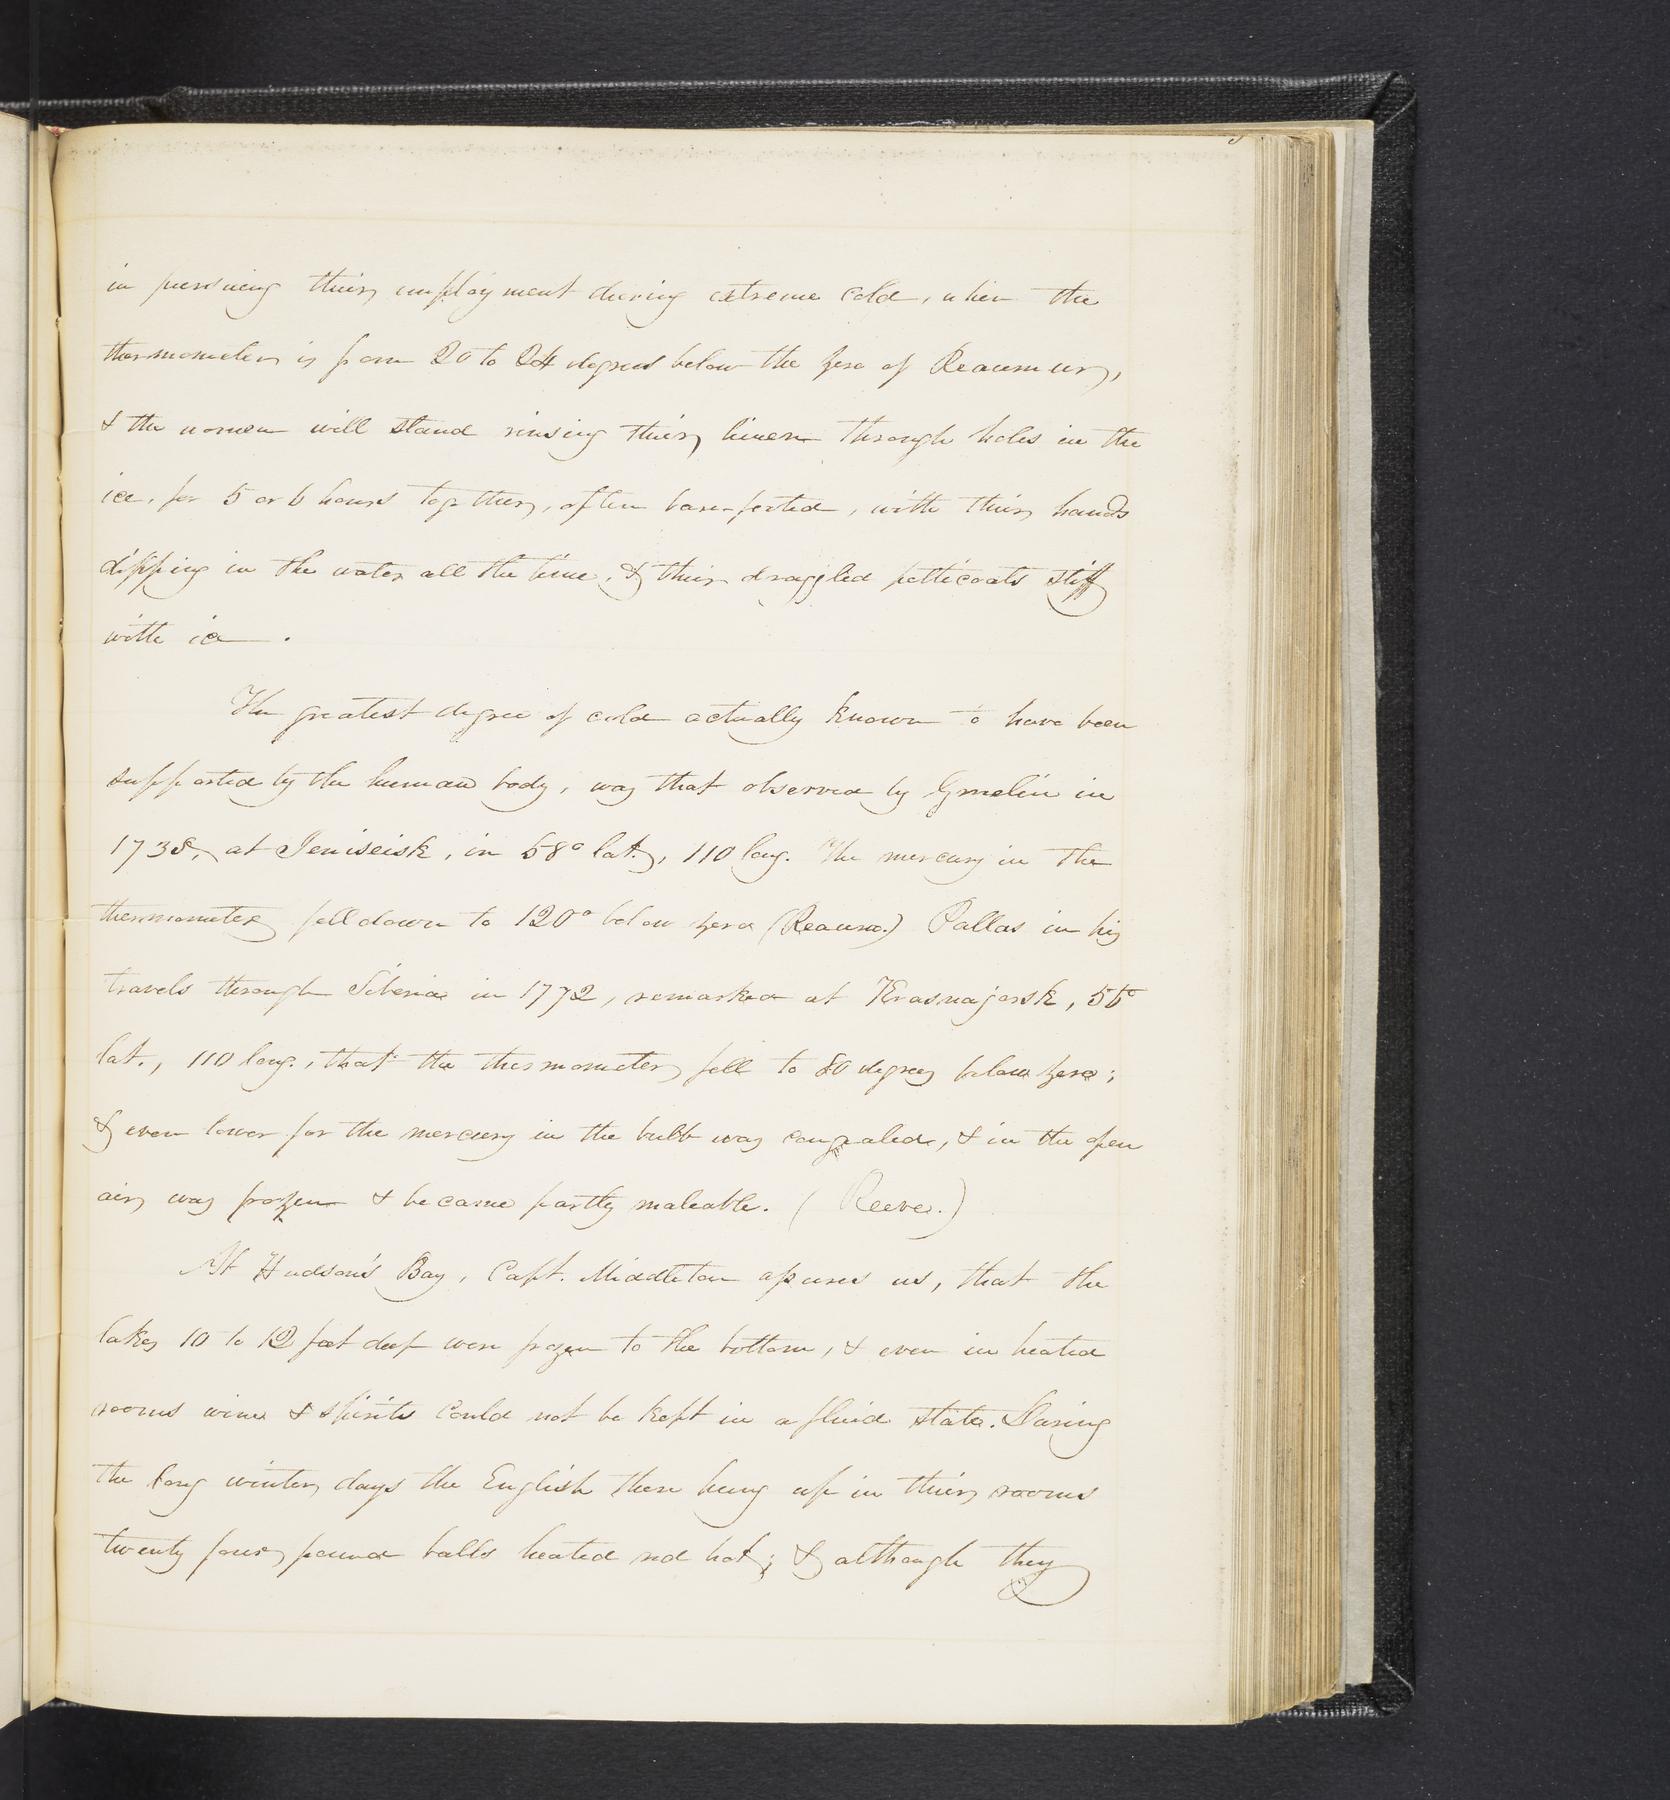 in pursuing their employment during extreme cold, when the
thermometer is from 20 to 24 degrees below the zero of Reaumur,
& the women will stand rinsing their linen through holes in the
ice, for 5 or 6 hours together, often bare-footed, with their hands
dipping in the water all the time, & their draggled petticoats stiff
with ice.
The greatest degree of cold actually known to have been
supported by the human body, was that observed by Gmelin in
1738, at Jeniseisk, in 58° lat., 110 long. The mercury in the
thermometer fell down to 120° below zero (Reaum.) Pallas in his
travels through Siberia in 1772, remarked at Krasnajarsk, 56°
lat., 110 long., that the thermometer fell to 80 degrees below zero;
& even lower for the mercury in the bulb was congealed, & in the open
air, was frozen & became partly maleable. (Reeve.)
At Hudson's Bay, Capt. Middleton assures us, that the
lakes 10 to 12 feet deep were frozen to the bottom, & even in heated
rooms wine & spirits could not be kept in a fluid state. During
the long winter days the English there hung up in their rooms
twenty four pound balls heated red hot; & although they